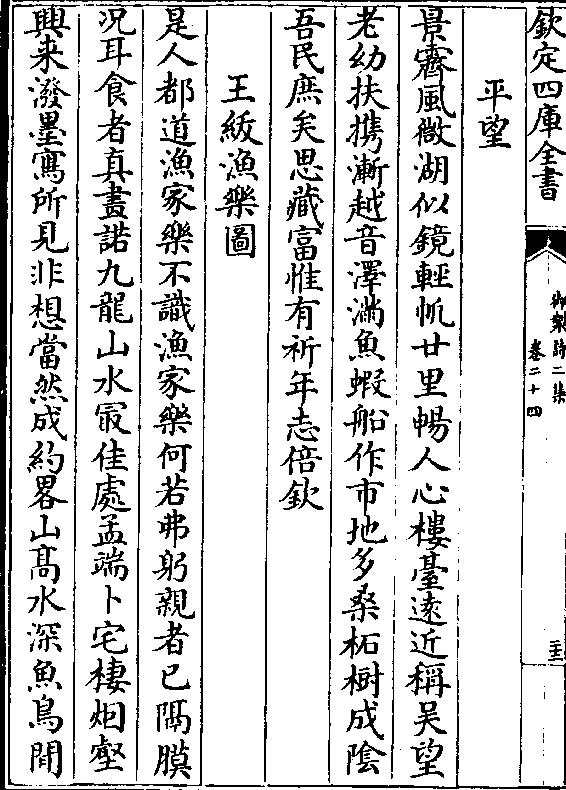 欽定四庫全書
御製詩二集
卷二十四
三
平望
景霽風微湖似鏡輕帆廿里暢人心樓臺遠近稱吳望
老幼扶攜漸越音澤滿魚蝦船作市地多桑柘樹成陰
吾民庶矣思藏富惟有祈年志倍欽
王紱漁樂圖
是人都道漁家樂不識漁家樂何若弗躬親者已隔膜
況耳食者真畫諾九龍山水冣佳處孟端卜宅棲烟壑
興来潑墨寫所見非想當然成約畧山髙水深魚鳥閒